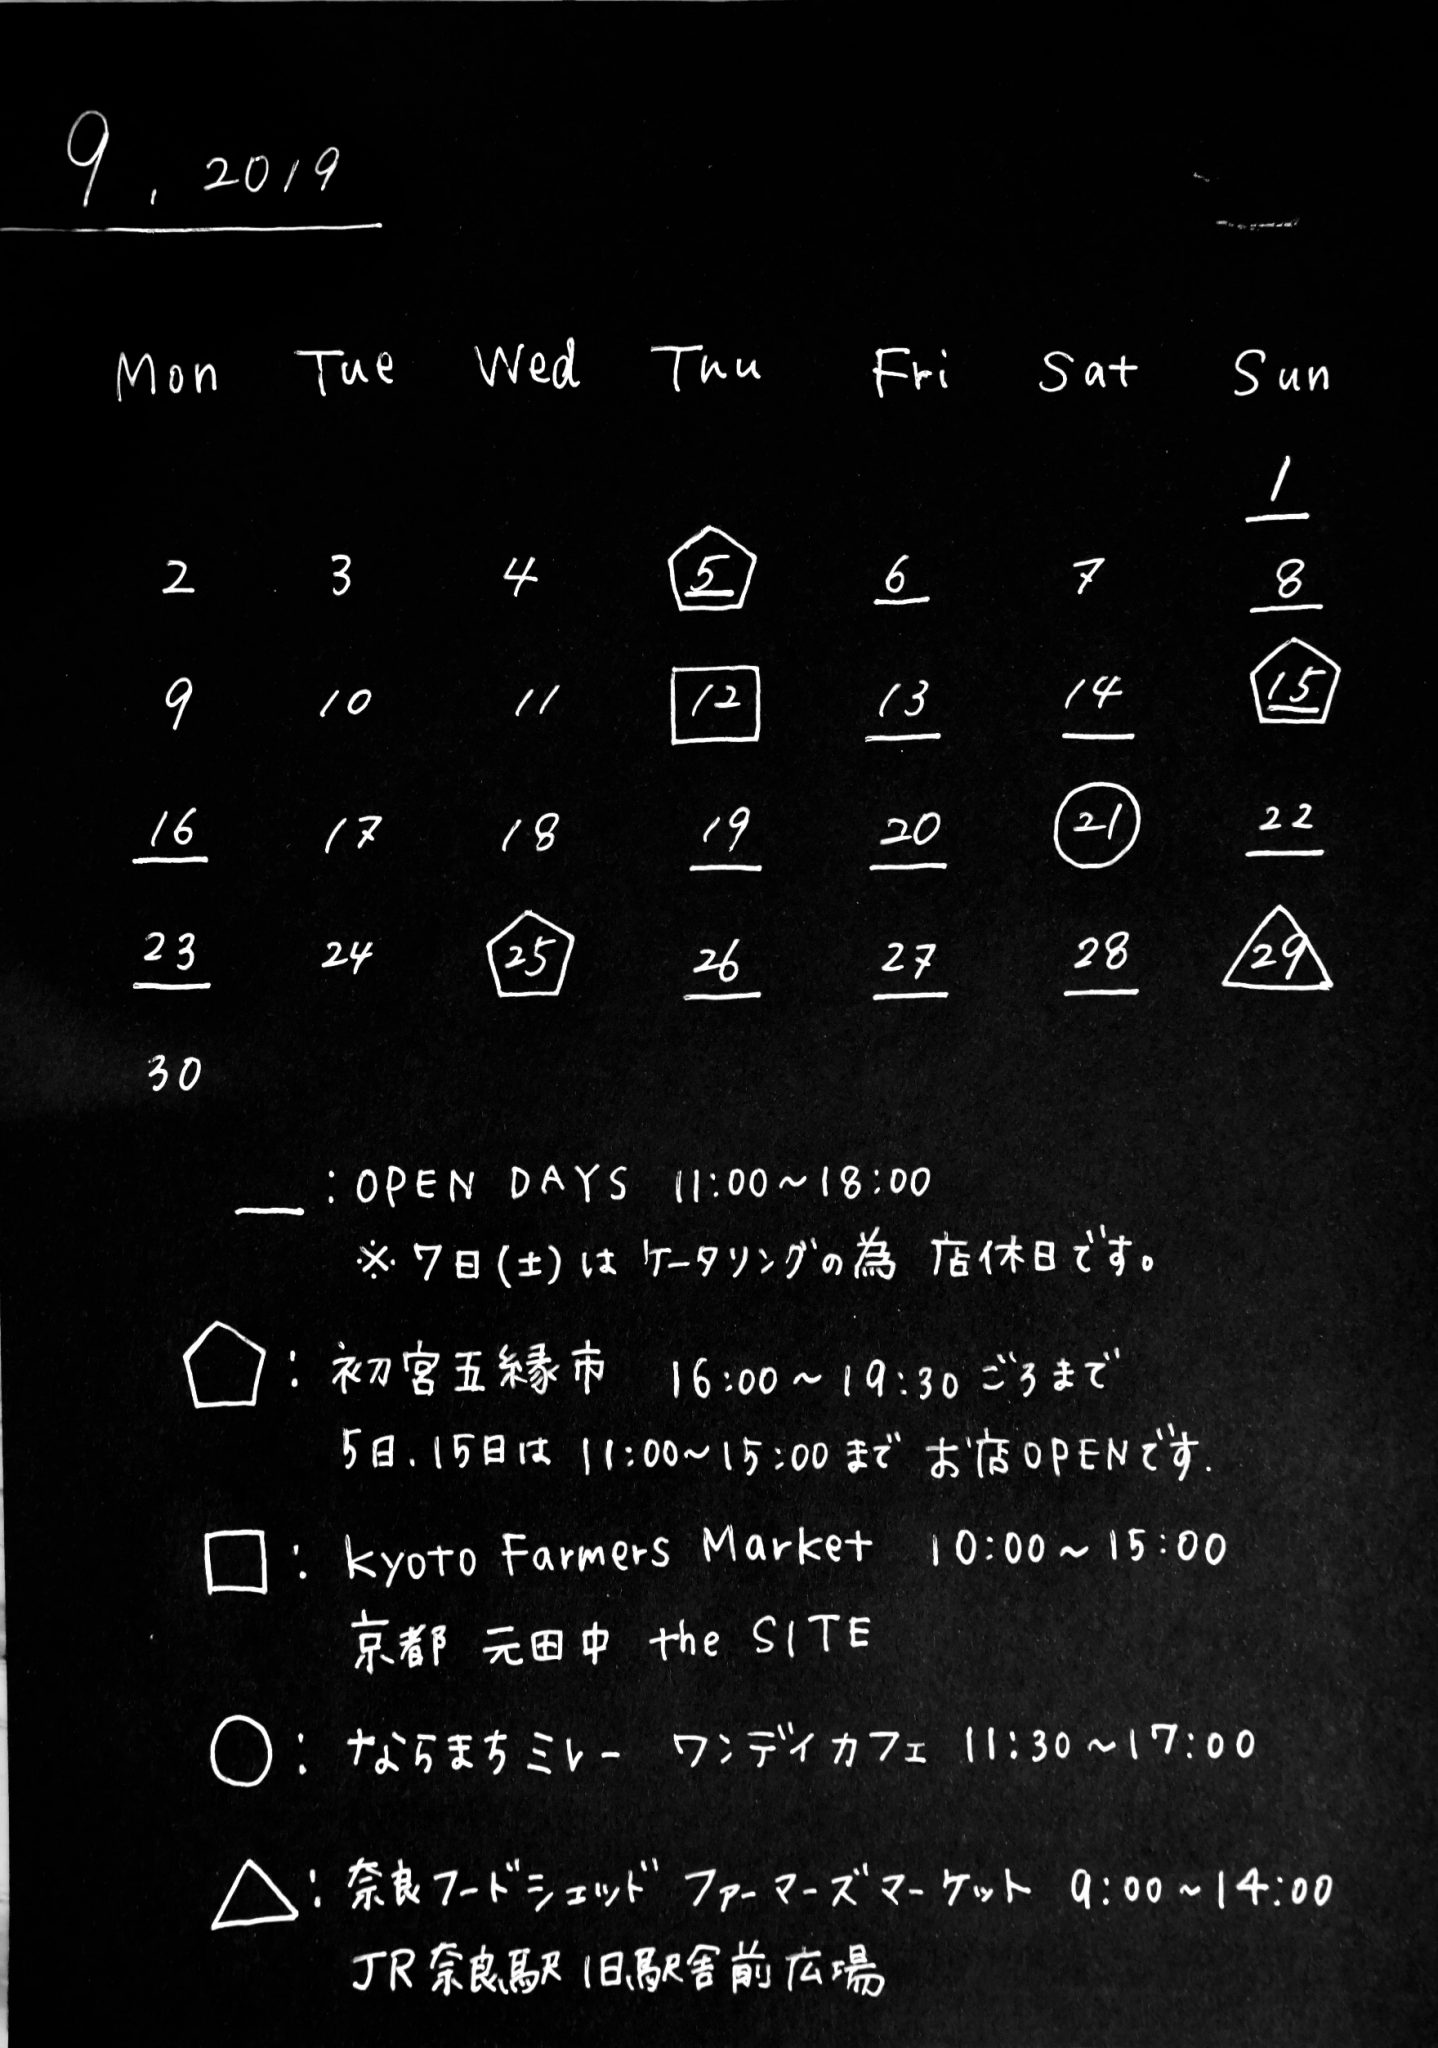 9, 2019
Mon Tue Wed Thu Fri Sat Sun
1
2 3 4 5 6 7 8
9 10 11 12 13 14 15
16 17 18 19 20 21 22
23 24 25 26 27 28 29
30
: OPEN DAYS 11:00~18:00
※ 7日(土)は ケータリングの為 店休日です。
: 初宮五縁市 16:00~19:30 ごろまで
5日.15日は 11:00~15:00まで お店OPENです.
: Kyoto Farmers Market 10:00~15:00
京都 元田中 the SITE
: ならまちミレー ワンデイカフェ 11:30~17:00
: 奈良フードシェッド ファーマーズマーケット 9:00~14:00
JR奈良駅 旧駅舎前広場